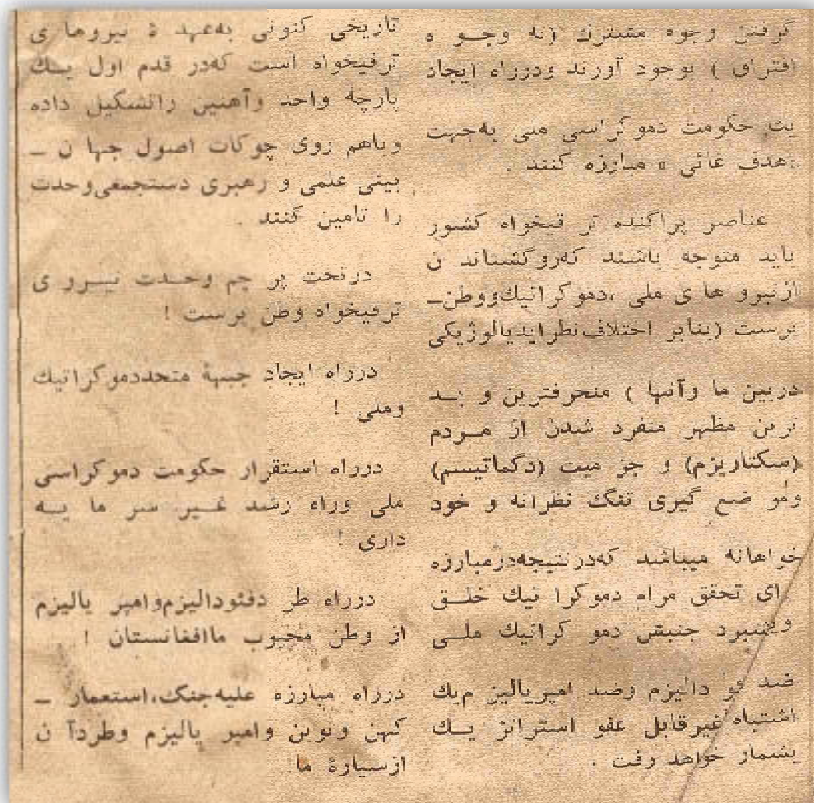 گرفتن وجوه مشترك (نه وجوه
افتراق ) بوجود آورند ودرراه ایجاد
یك حکومت دموکراسی ملی بهجهت
هدف غائی » مبارزه کنند .
عناصر پراگنده تر قیخواه کشور
باید متوجه باشند کهروگشتاند ن
ازنیرو ها ی ملی ،دموکراتیكووطن‌ـ
پرست (بنابر اختلافنظرایدیالوژیکی
دربین ما وآنها ) منحرفترین و بــد
ترین مظهر منفرد شدن از مــردم
(سکتاریزم) و جز میت (دگماتیسم)
ومو ضع گیری تنگ نظرانه و خود
خواهانه میباشد کهدرنتیجهدرمبارزه
برای تحقق مرام دموکرا تیك خلــق
وپیشبرد جنبش دمو کراتیك ملــی
ضد فیو دالیزم وضد امپریالیز م‌یك
اشتباه غیرقابل عفو استراتژ یــك
بشمار خواهد رفت .
تاریخی کنونی بهعهد ۀ نیروها ی
ترقیخواه است کهدر قدم اول یــك
پارچه واحد وآهنین راتشکیل داده
وباهم روی چوکات اصول جها ن ــ
بینی علمی و رهبری دستجمعی‌وحدت
را تامین کنند .
درتحت پر چم وحــدت نیــرو ی
ترقیخواه وطن پرست !
درراه ایجاد جبهۀ متحددموکراتیك
وملی !
درراه استقرار حکومت دموکراسی
ملی وراه رشد غــیر سر ما یــه
داری !
درراه طر دفئودالیزم‌وامپر یالیزم
از وطن محبوب ماافغانستان !
درراه مبارزه علیه‌جنگ،استعمار ــ
کهن ونوین وامپر یالیزم وطردآ ن
ازسیارۀ ما